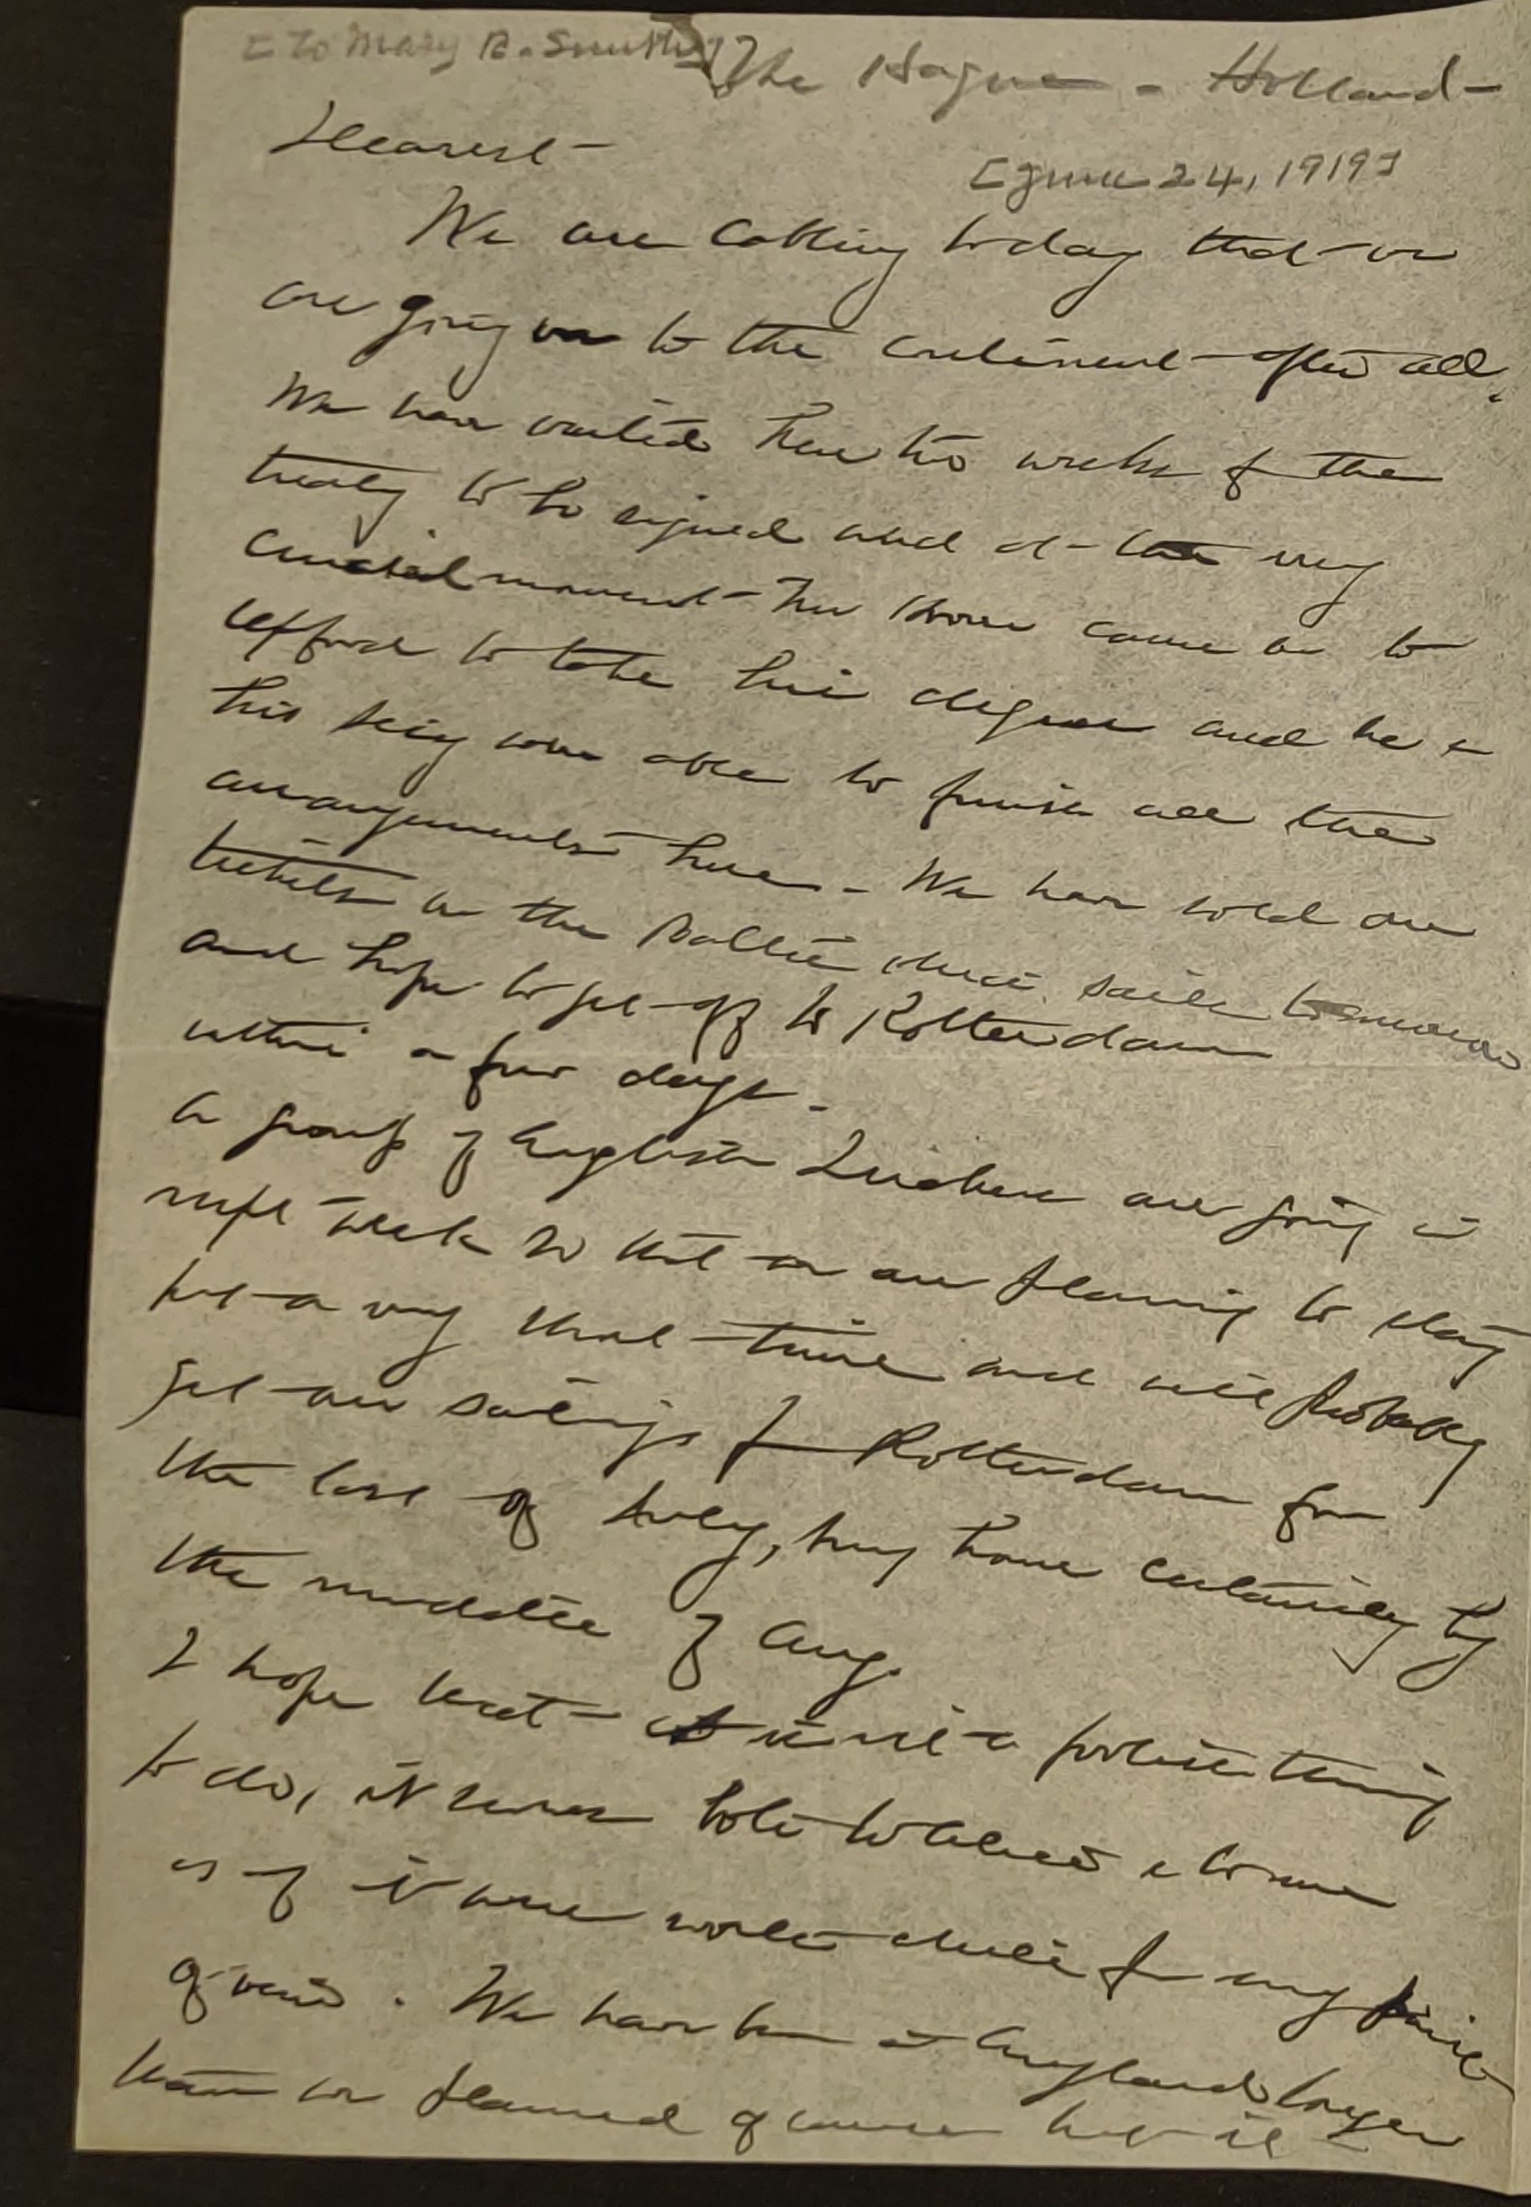 [to Mary R. Smith] The Hague - Holland -
Dearest -
[June 24, 1919]
We are cabling today that we
are going on to the continent after all.
We have waited here two weeks for the
treaty to be signed and at the very
crucial moment Mr Hoover came on to
Oxford to take his degree and he &
his Sec'y were able to finish all the
arrangements here - We have sold our
tickets on the Baltic which sails tomorrow
and hope to get off to Rotterdam
within a few days -
A group of English Quakers are going in
next week so that we are planning to stay
but a very short time and will probably
get our sailings from Rotterdam for
the last of July, being home certainly by
the middle of Aug.
I hope that it is not a foolish thing
to do, it seems both to Alice & to me
as if it were worth while from any point
of view. We have been in England longer
than we planned of course but it